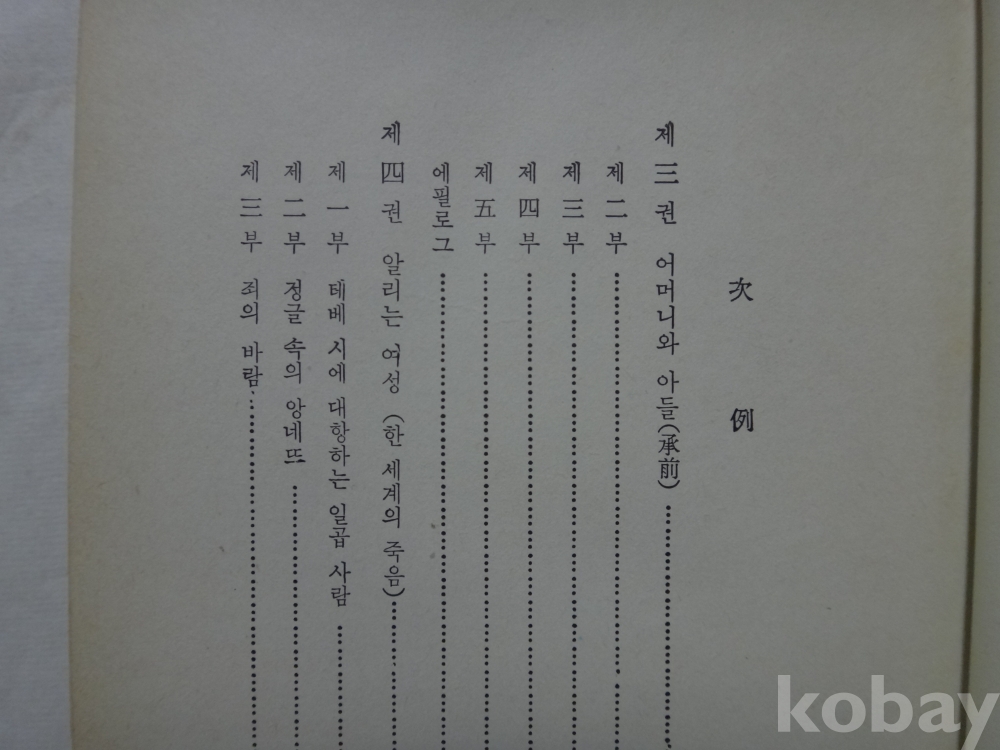 次例
제三권 어머니와 아들(承前)
제二부
제三부
제四부
제五부
에필로그
제四권 알리는 여성 (한 세계의 죽음)
제一부 테베 시에 대항하는 일곱 사람
제二부 정글 속의 앙네뜨
제三부 죄의 바람
kobay